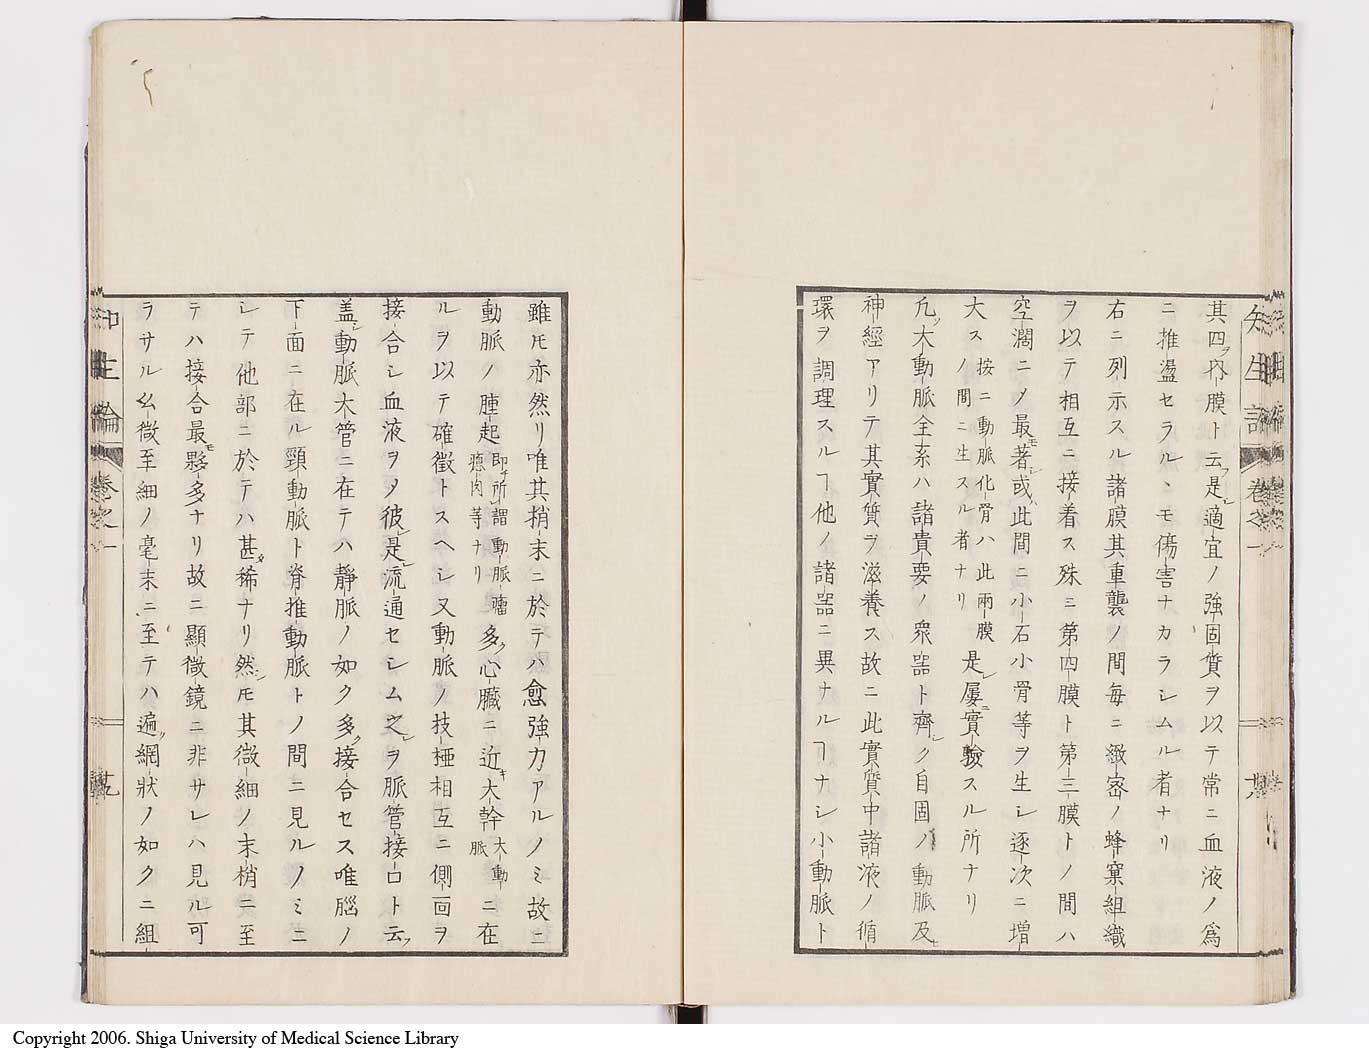 其四ヲ内膜ト云フ是レ適宜ノ強固質ヲ以テ常ニ血液ノ為
ニ推盪セラルヽモ傷害ナカラシムル者ナリ
右ニ列示スル諸膜其重襲ノ間毎ニ緻密ノ蜂窠組織
ヲ以テ相互ニ接着ス殊ニ第四膜ト第三膜トノ間ハ
空濶ニメ最モ著レ或ハ此間ニ小石小骨等ヲ生シ逐次ニ増
大ス按ニ動脈化骨ハ此兩膜ノ間ニ生スル者ナリ是レ屢ニ實驗スル所ナリ
凢ソ大動脈全系ハ諸貴要ノ衆噐ト齊シク自固ノ動脈及ヒ
神經アリテ其實質ヲ滋養ス故ニ此實質中諸液ノ循
環ヲ調理スルヿ他ノ諸噐ニ異ナルヿナシ小動脈ト
雖モ亦然リ唯其梢末ニ於テハ愈強力アルノミ故ニ
動脈ノ腫起即チ所謂動脈瘤瘜肉等ナリ多ク心臓ニ近キ大幹大動脈ニ在
ルヲ以テ確徴トスヘシ又動脈ノ技極相互ニ側面ヲ
接合シ血液ヲメ彼レ是レ流通セシム之レヲ脈管接口ト云フ
盖シ動脈大管ニ在テハ靜脈ノ如ク多ク接合セス唯腦ノ
下面ニ在ル頸動脈ト脊推動脈トノ間ニ見ルノミニ
シテ他部ニ於テハ甚タ稀ナリ然シ𪜈其微細ノ末梢ニ至
テハ接合最モ夥多ナリ故ニ顯微鏡ニ非サレハ見ル可
ラサル幺微至細ノ毫末ニ至テハ遍ク網状ノ如クニ組
知生論 卷之一